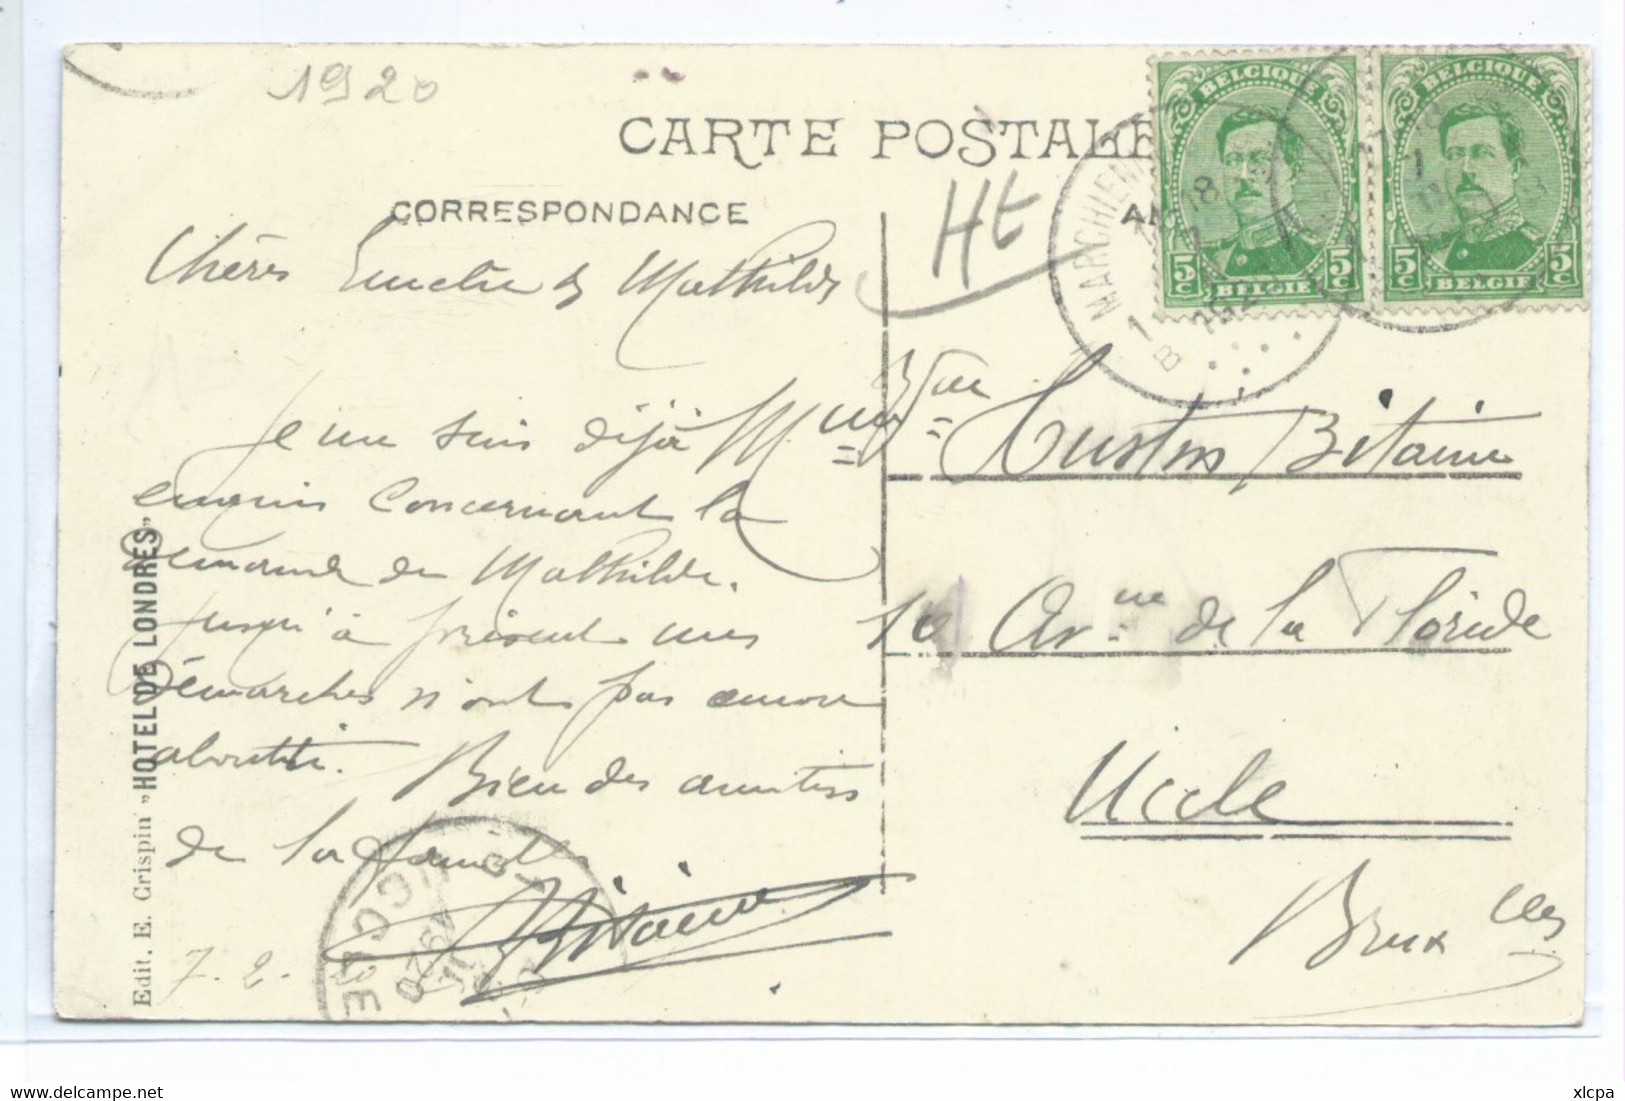 1920
CARTE POSTALE
CORRESPONDANCE
Ht
BELGIQUE
5c 5c
BELGIE
BELGIQUE
5c 5c
BELGIE
MARCHIENN
1 B
Chères et Mathilde
Je me suis déjà
enquis concernant la
demande de Mathilde.
Jusqu'à présent mes
démarches n'ont pas encore
abouti. Bien des amitiés
de la famille
Bitaine
7.2.
Bitaine
10 Avnue de la Floride
Uccle
Bruxelles
UCCLE
1920
Edit. E. Crispin "HOTEL DE LONDRES"
xlcpa